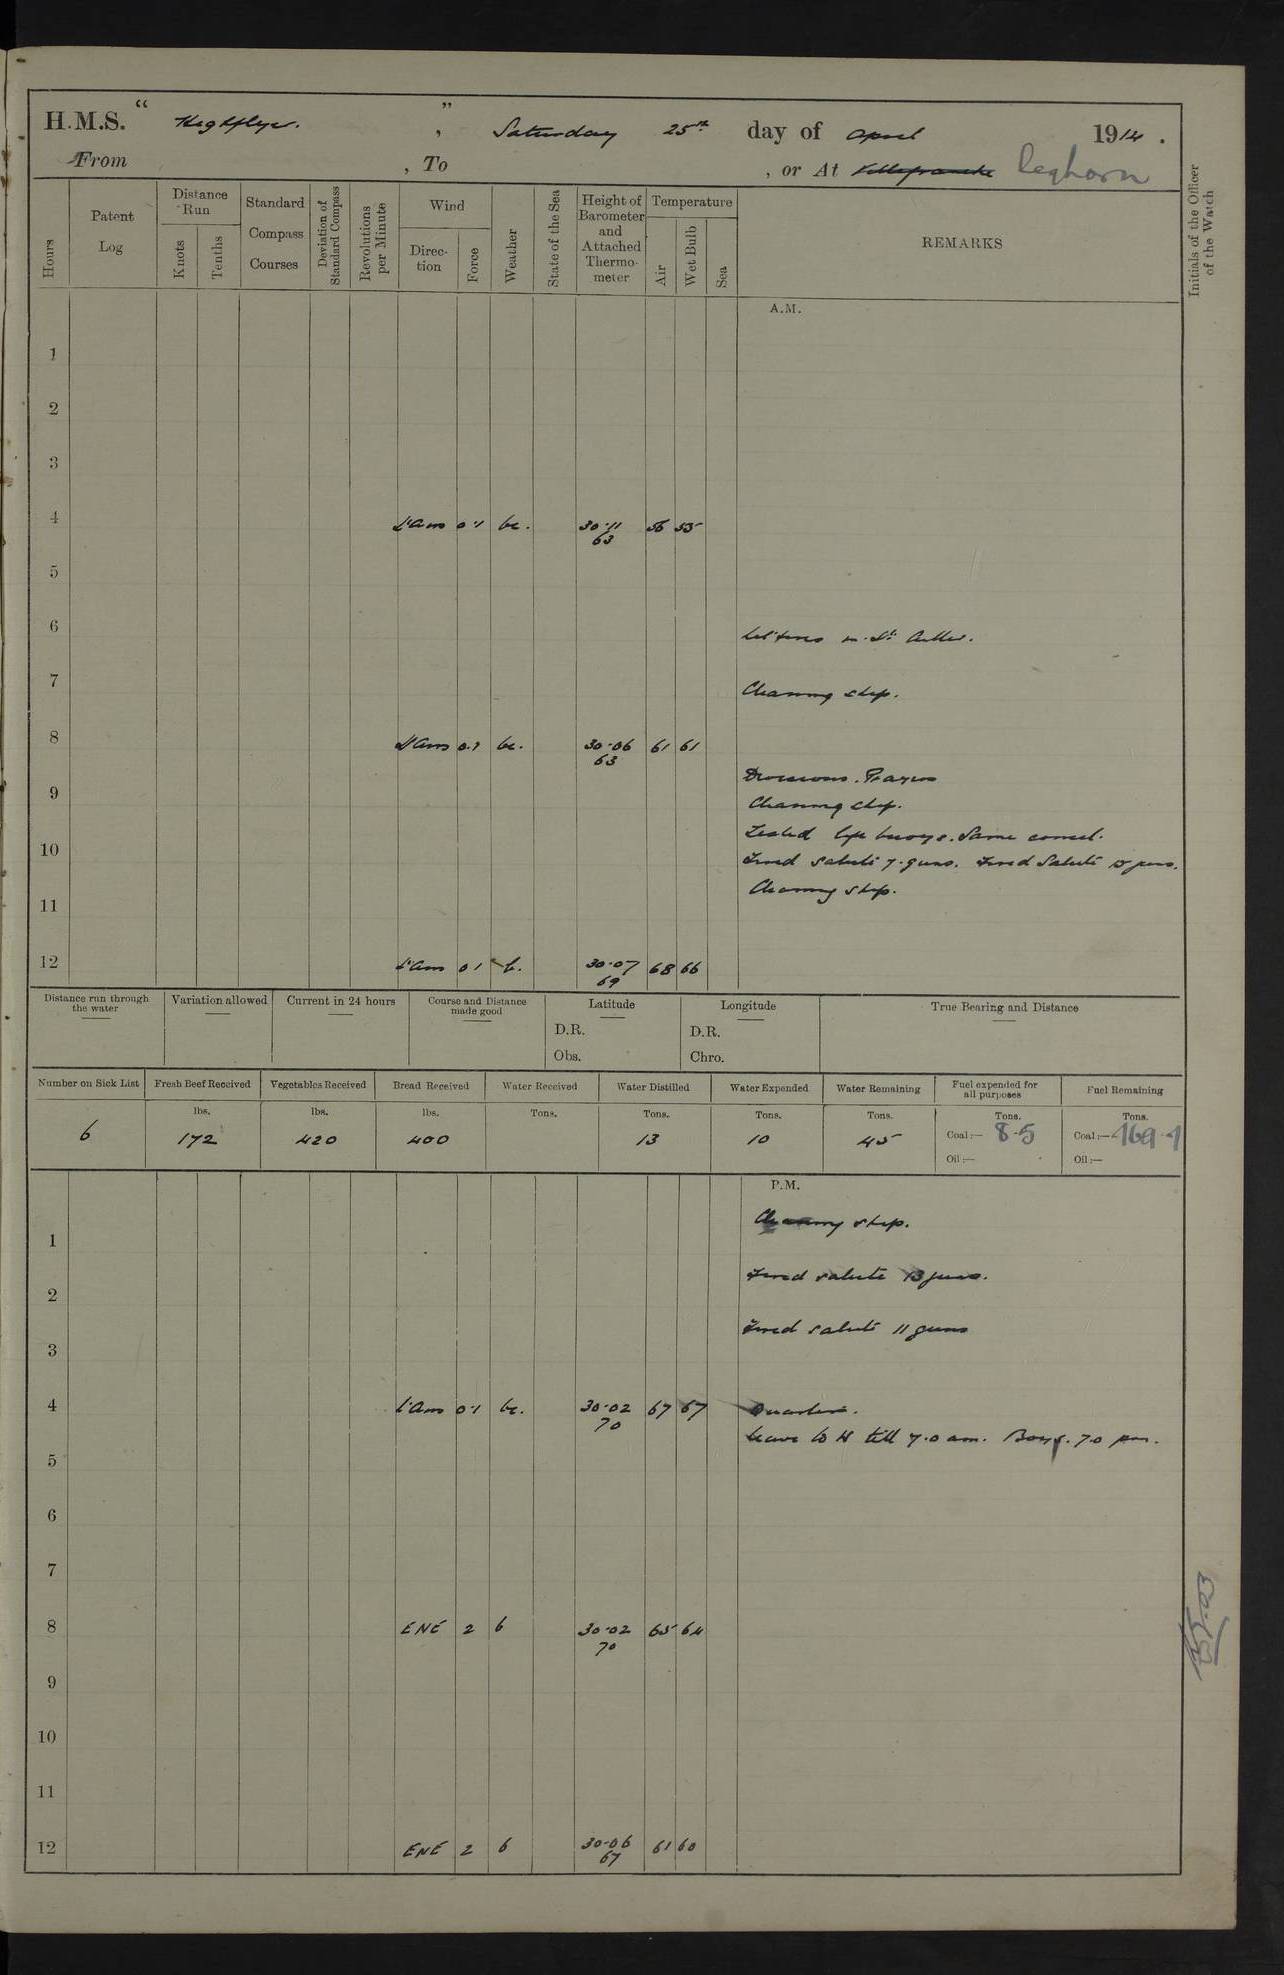 H.M.S. “ Highflyer. ”, Saturday 25th day of April 1914.
From , To , or At Villefranche Leghorn
Hours
Patent Log
Distance Run
Knots
Tenths
Standard Compass Courses
Deviation of Standard Compass
Revolutions per Minute
Wind
Direction
Force
Weather
State of the Sea
Height of Barometer and Attached Thermometer
Temperature
Air
Wet Bulb
Sea
REMARKS
Initials of the Officer of the Watch
A.M.
1
2
3
4 Cam 0·1 bc. 30·11 63 56 55
5
6
7 Cleaning ship.
8 Cam 0·1 bc. 30·06 63 61 61
Divisions. Prayers
9 Cleaning ship.
Tested life buoys. Same correct.
10 Fired salute 7 guns. Fired Salute 15 guns.
Cleaning ship.
11
12 Cam 0 1 b. 30·07 69 68 66
Distance run through the water
Variation allowed
Current in 24 hours
Course and Distance made good
Latitude
D.R.
Obs.
Longitude
D.R.
Chro.
True Bearing and Distance
Number on Sick List
Fresh Beef Received
Vegetables Received
Bread Received
Water Received
Water Distilled
Water Expended
Water Remaining
Fuel expended for all purposes
Fuel Remaining
lbs. lbs. lbs. Tons. Tons. Tons. Tons. Tons. Tons.
6 172 420 400 13 10 45 Coal:— 8·5 Coal:— 469·1
Oil:— Oil:—
P.M.
Cleaning ship.
1
Fired salute 13 guns.
2
Fired salute 11 guns
3
4 Cam 0·1 bc. 30·02 70 67 67 Quarters.
Leave to W till 7.0 am. Boys. 7.0 pm.
5
6
7
8 ENE 2 b 30·02 70 65 64
9
10
11
12 ENE 2 b 30·06 67 61 60